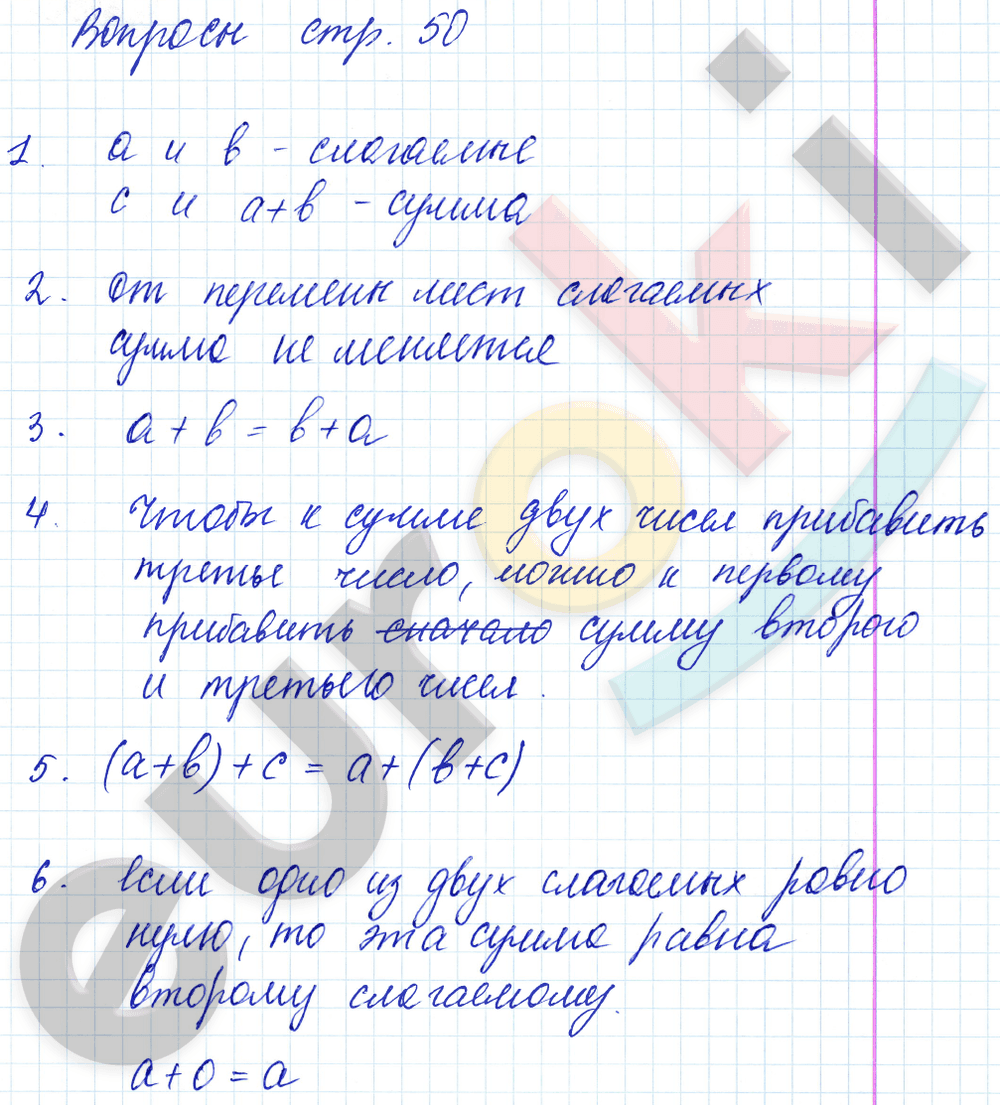 Вопросы стр. 50
1. а и в - слагаемые
с и а+в - сумма
2. От перемены мест слагаемых
сумма не меняется
3. а + в = в + а
4. Чтобы к сумме двух чисел прибавить
третье число, можно к первому
прибавить сначало сумму второго
и третьего чисел.
5. (а+в)+с = а+(в+с)
6. Если одно из двух слагаемых равно
нулю, то эта сумма равна
второму слагаемому.
а+0=а
euroki